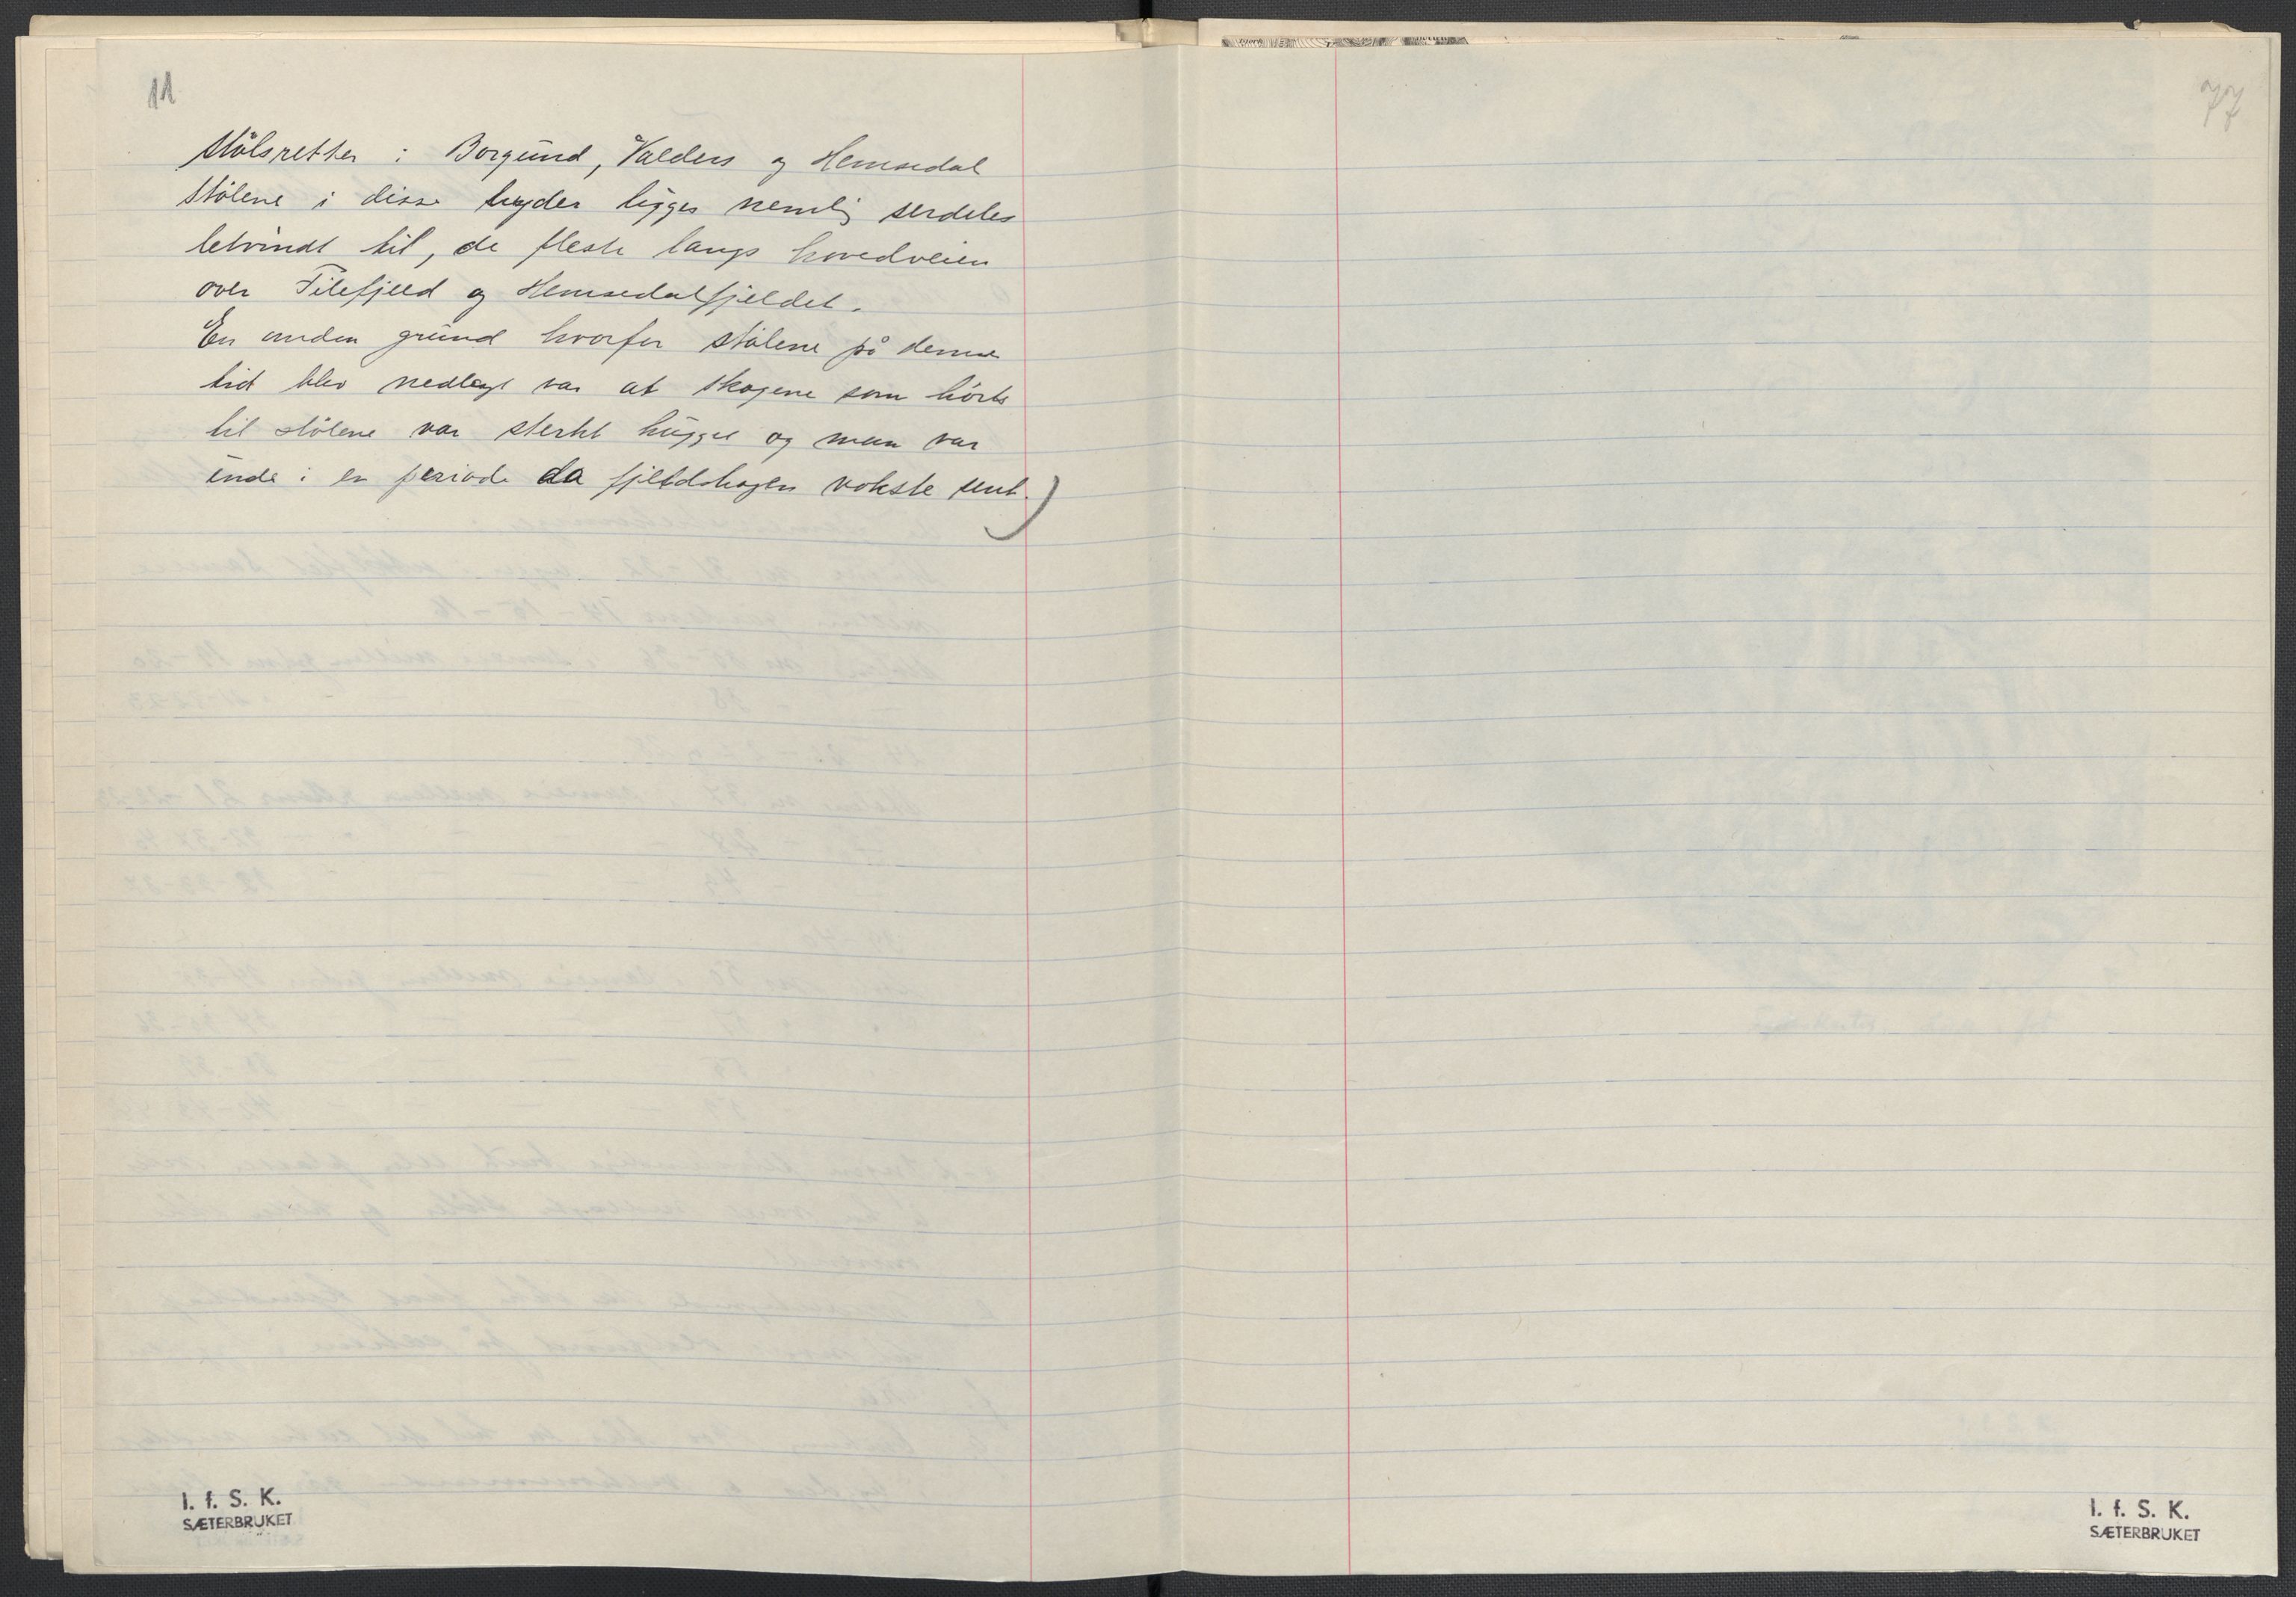 11
stölsretter i Borgund, Valders og Hemsedal
Stölene i disse bygder ligger nemlig serdeles
letvindt til, de fleste langs hovedveien
over Filefjeld og Hemsedalsfjeldet.
En anden grund hvorfor stölene på denne
tid blev nedlagt var at skogene som hörte
til stölene var sterkt hugget og man var
inde i en periode da fjeldskogen vokste sent.)
77
I. f. S. K.
SÆTERBRUKET
I. f. S. K.
SÆTERBRUKET